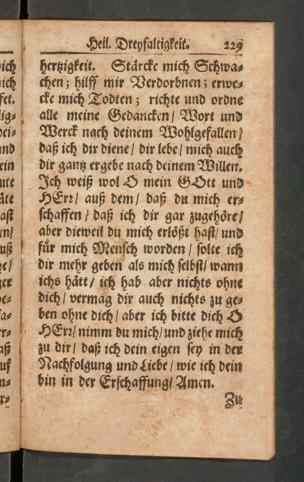 Heil. Dreyfaltigkeit. 229
hertzigkeit. Stärcke mich Schwa-
chen; hilff mir Verdorbnen; erwe-
cke mich Todten; richte und ordne
alle meine Gedancken / Wort und
Werck nach deinem Wohlgefallen /
daß ich dir diene / dir lebe / mich auch
dir gantz ergebe nach deinem Willen.
Ich weiß wol O mein GOtt und
HErr / auß dem / daß du mich er-
schaffen / daß ich dir gar zugehöre /
aber dieweil du mich erlößt hast / und
für mich Mensch worden / solte ich
dir mehr geben als mich selbst / wann
ichs hätt / ich hab aber nichts ohne
dich / vermag dir auch nichts zu ge-
ben ohne dich / aber ich bitte dich O
HErr / nimm du mich / und ziehe mich
zu dir / daß ich dein eigen sey in der
Nachfolgung und Liebe / wie ich dein
bin in der Erschaffung / Amen.
Zu